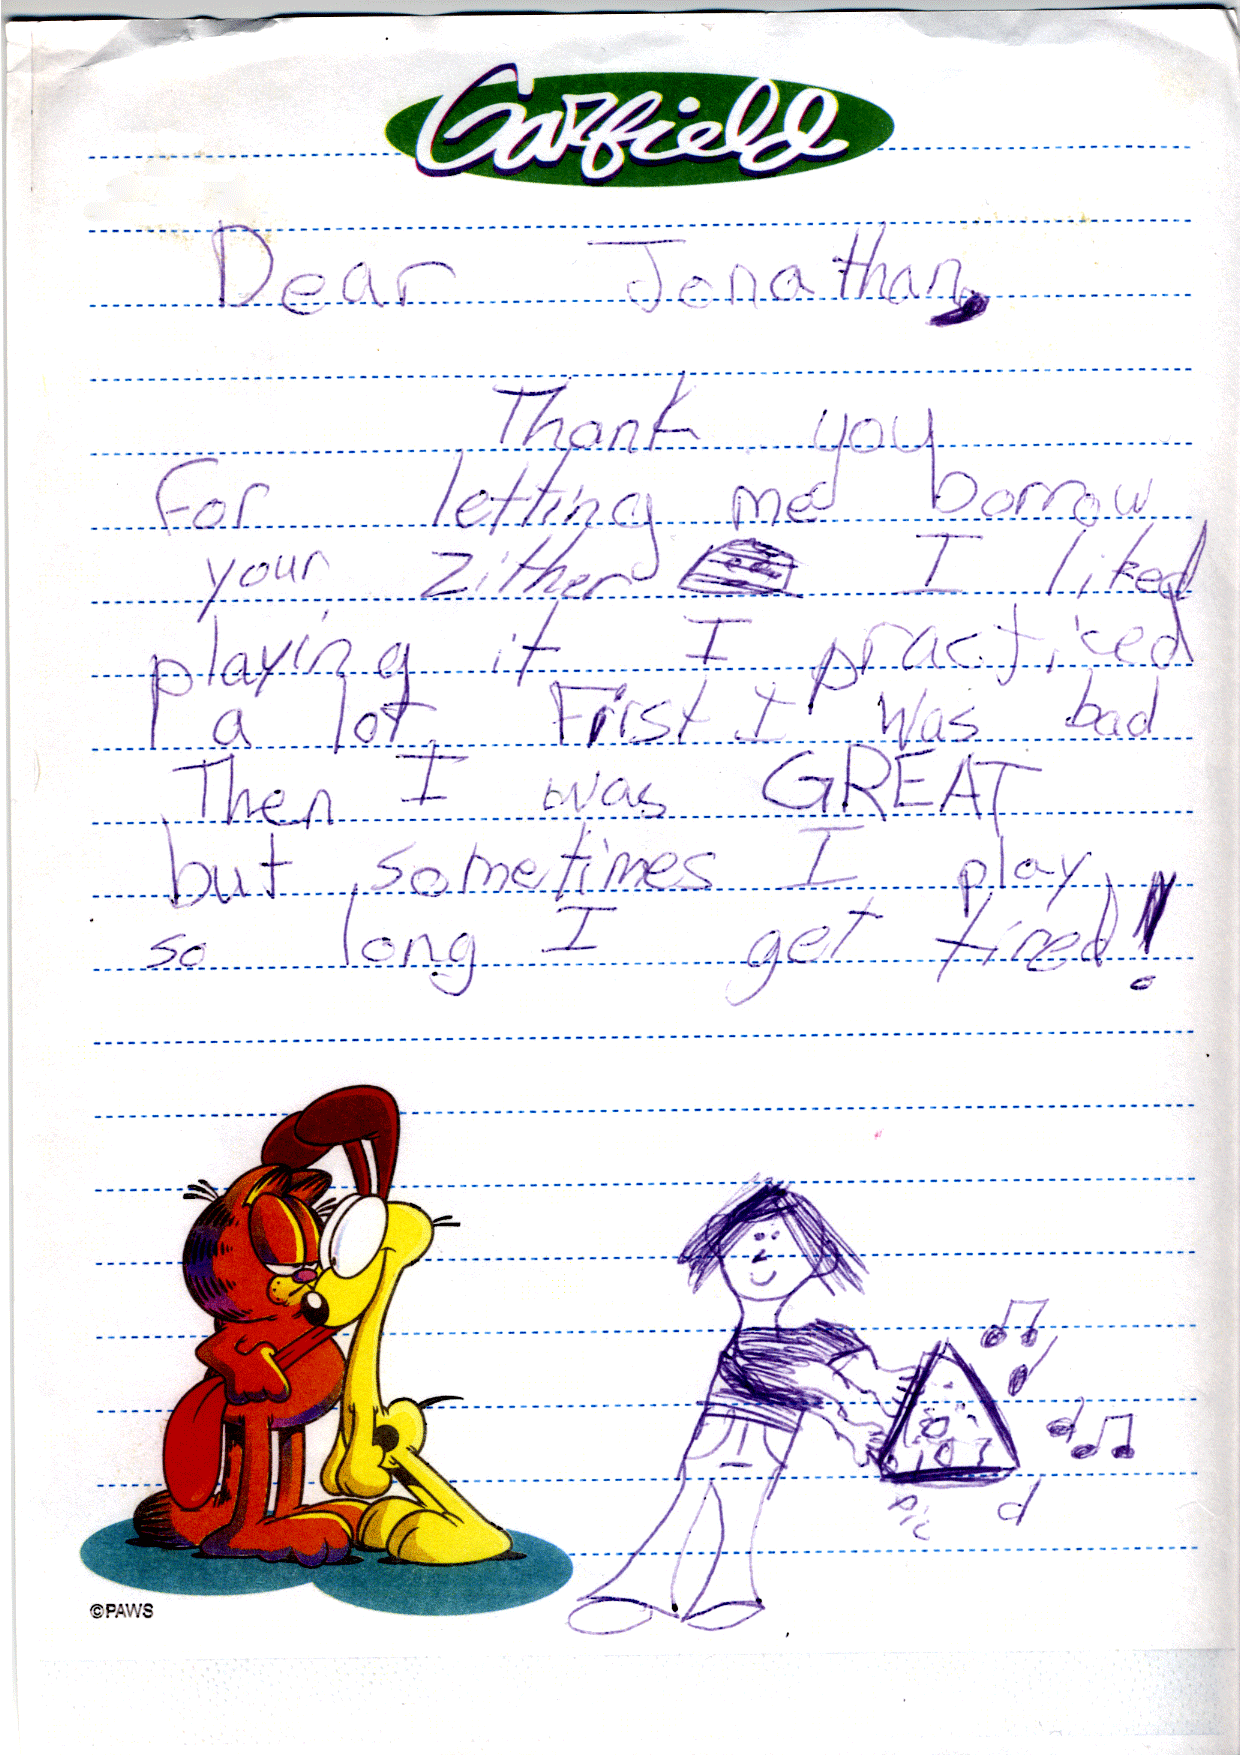 Garfield
Dear Jonathan,
Thank you
For letting me borrow
your zither I liked
playing it I practiced
a lot First I was bad
Then I was GREAT
but sometimes I play
so long I get tired!
©PAWS